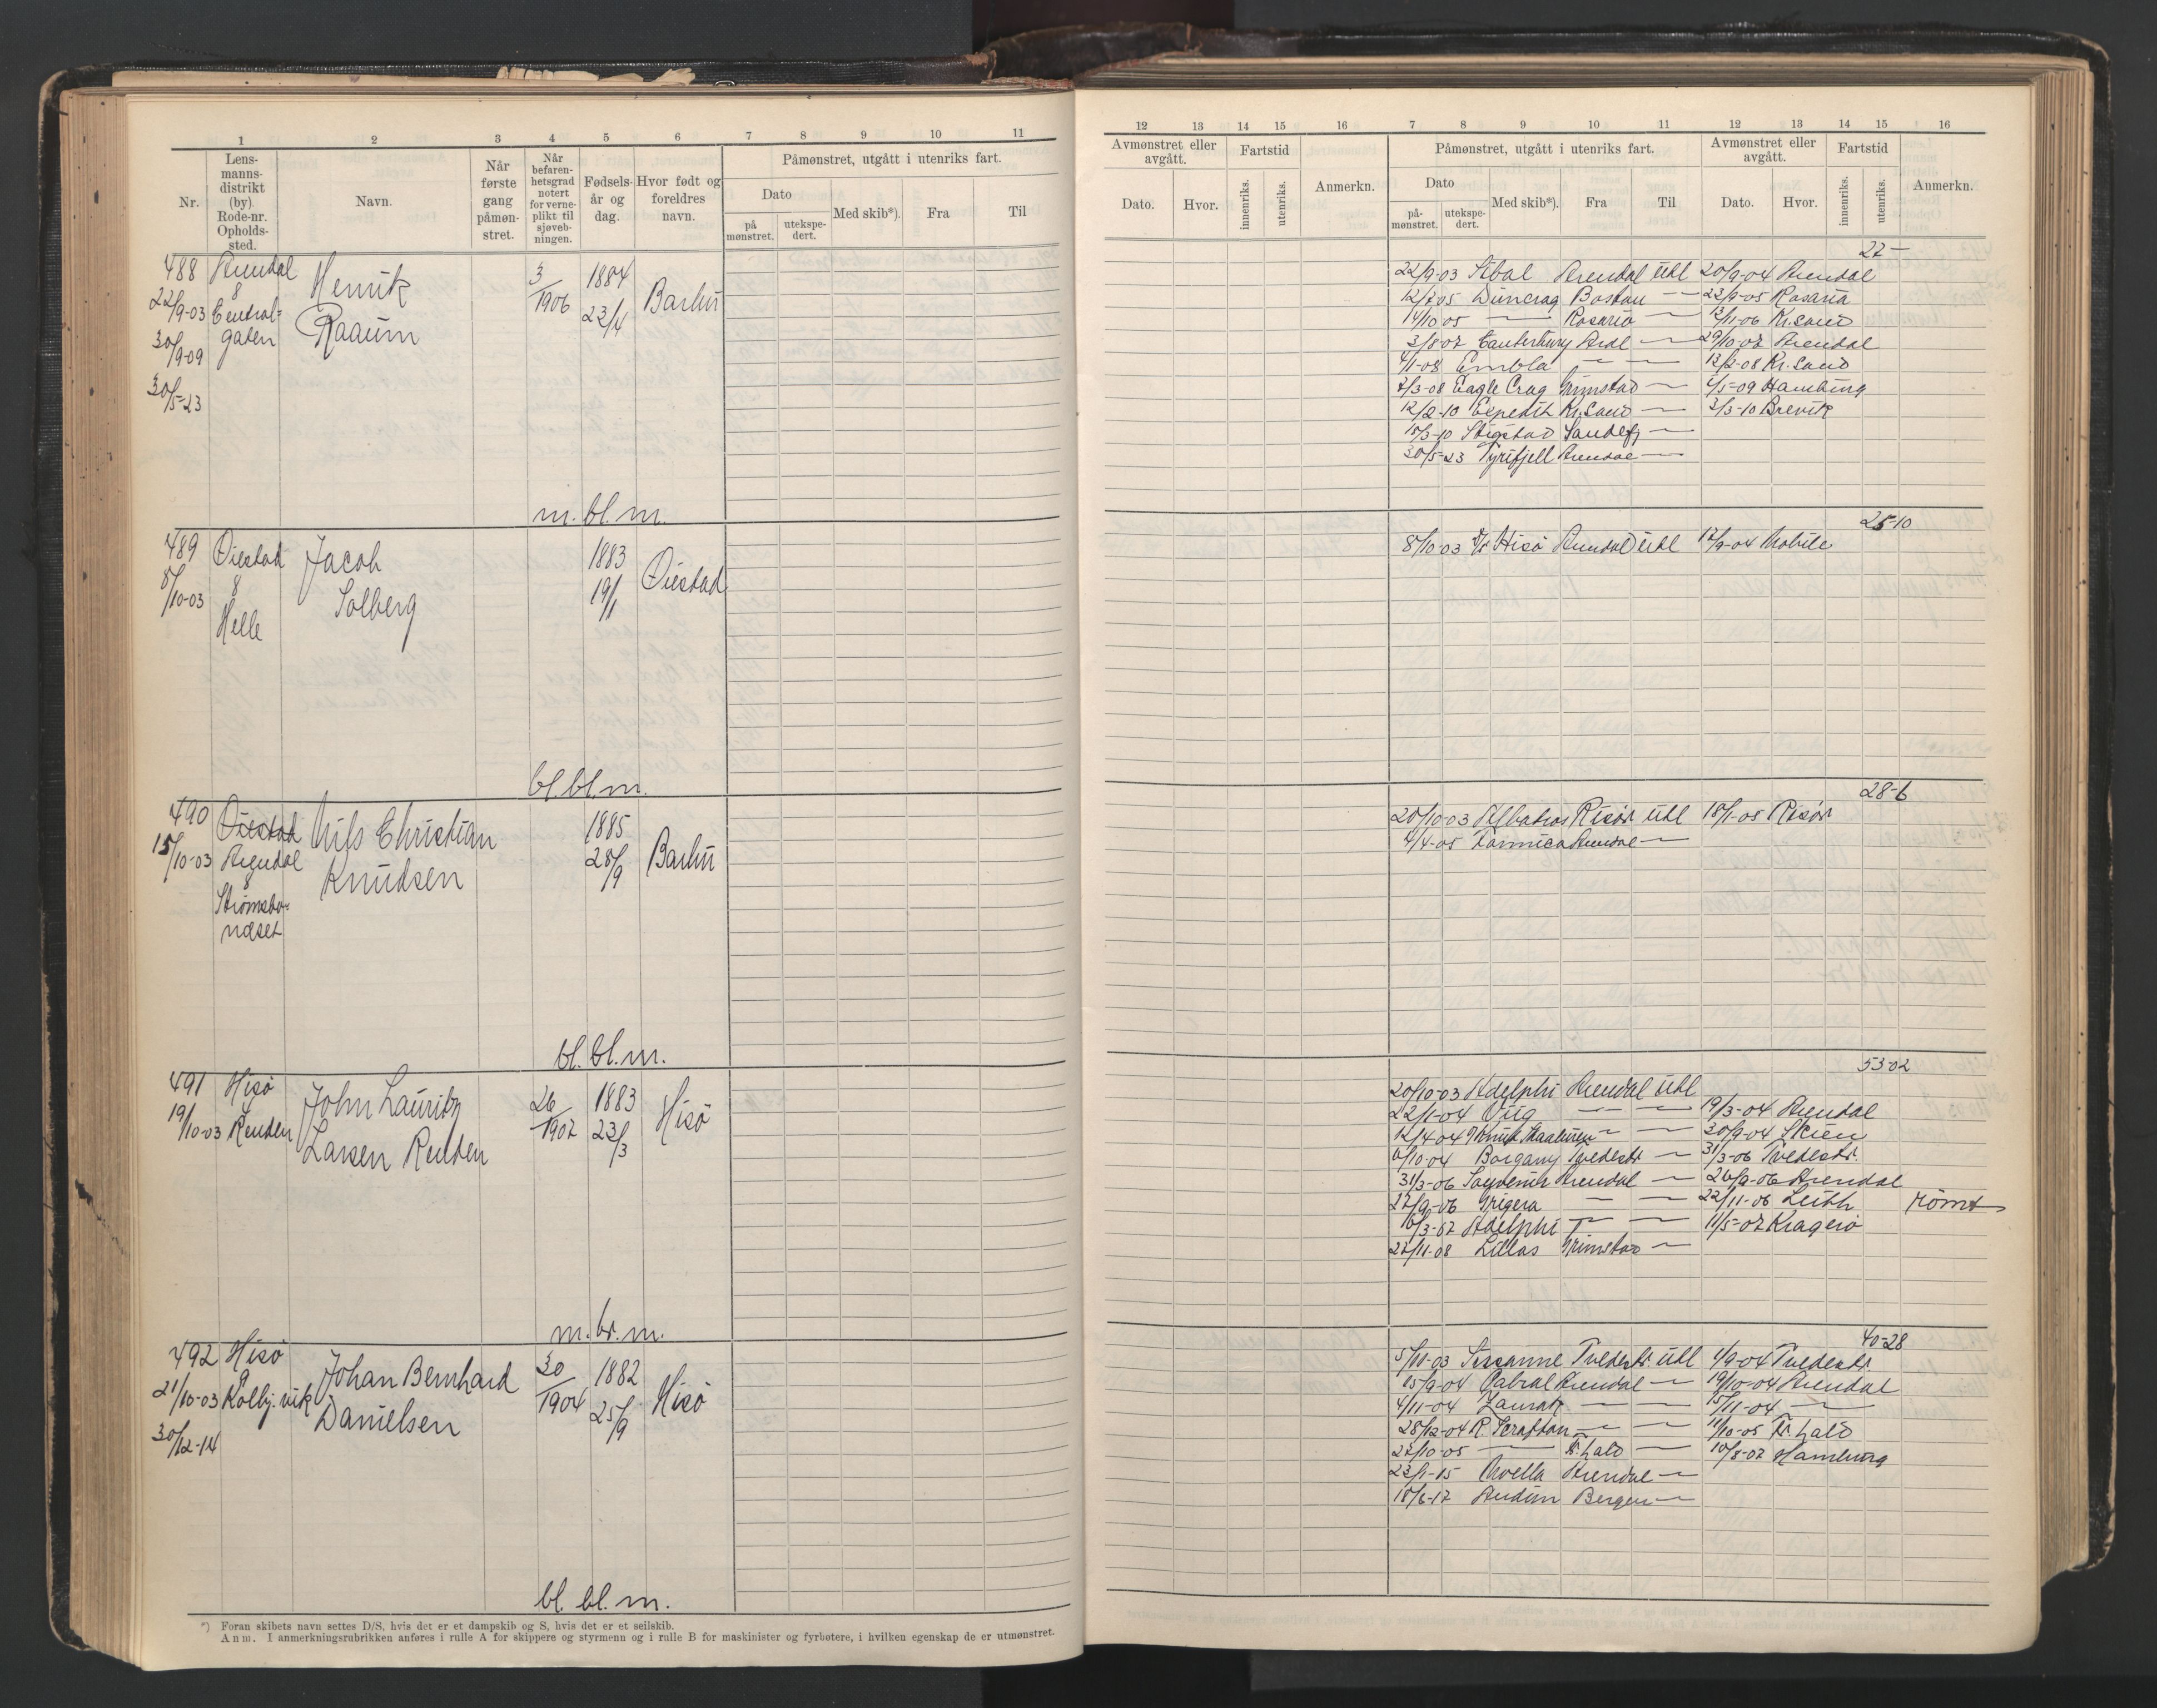 1 2 3 4 5 6 7 8 9 10 11
Nr.
Lens-
manns-
distrikt
(by).
Rode-nr.
Opholds-
sted.
Navn.
Når
første
gang
påmøn-
stret.
Når
befaren-
hetsgrad
notert
for verne-
plikt til
sjøveb-
ningen.
Fødsels-
år og
dag.
Hvor født og
foreldres
navn.
Påmønstret, utgått i utenriks fart.
Dato
på
mønstret.
utekspe-
dert.
Med skib*).
Fra
Til
488 Arendal Henrik 3/1906 1884 Barbu
22/9-03 8 Raaum 23/4
30/9-09 Central-
gaten
30/5-23
m. bl. m.
489 Øiestad Jacob 1883 Øiestad
8/10-03 8 Solberg 19/1
Helle
bl. bl. m.
490 Øiestad Nils Christian 1885 Barbu
15/10-03 Arendal Knudsen 28/9
8
Strømsbu-
næset
bl. bl. m.
491 Hisø John Lauritz 26/1907 1883 Hisø
19/10-03 Renden Larsen Renden 23/3
m. br. m.
492 Hisø Johan Bernhard 30/1904 1882 Hisø
21/10-03 Kolbj.vik Danielsen 25/9
30/12-14
bl. bl. m.
*) Foran skibets navn settes D/S, hvis det er et dampskib og S, hvis det er et seilskib.
Anm. I anmerkningsrubrikken anføres i rulle A for skippere og styrmenn og i rulle B for maskinister og fyrbøtere, i hvilken egenskap de er utmønstret.
12 13 14 15 16 7 8 9 10 11 12 13 14 15 16
Avmønstret eller
avgått.
Dato.
Hvor.
Fartstid
innenriks.
utenriks.
Anmerkn.
Påmønstret, utgått i utenriks fart.
Dato
på-
mønstret.
utekspe-
dert.
Med skib*).
Fra
Til
Avmønstret eller
avgått.
Dato.
Hvor.
Fartstid
innenriks.
utenriks.
Anmerkn.
27 —
22/9-03 Arendal Utl 20/9-04 Arendal
12/7-05 Duncrag Boston — 23/9-05 Rosaria
14/10-05 — Rosario — 12/11-06 Kr.sand
3/8-07 Canterbury Ardl — 29/10-07 Arendal
4/1-08 Embla — — 13/2-08 Kr.sand
7/3-08 Eagle Crag Grimstad — 4/5-09 Hamburg
12/2-10 Expedit Kr.sand — 3/3-10 Brevik
15/3-10 Stigstad Sandefj —
30/5-23 Tyrifjell Arendal —
25-10
8/10-03 Hisø Arendal Utl 17/9-04 Mobile
28-6
20/10-03 Albatros Risør Utl 18/1-05 Risør
4/4-05 Arendal —
53-02
20/10-03 Adelphi Arendal Utl
22/1-04 Viig — — 19/3-04 Arendal
12/4-04 Knut — — 30/9-04 Skien
6/10-04 Borgany Tvedestr — 31/3-06 Tvedestr.
31/3-06 Souvenir Arendal — 26/9-06 Arendal
27/9-06 Grigera — — 22/11-06 Leith rømt
16/3-07 Adelphi — — 11/5-07 Kragerø
27/11-08 Lillas Grimstad —
40-28
5/11-03 Susanne Tvedestr Utl 1/9-04 Tvedestr.
15/9-04 Cabral Arendal — 19/10-04 Arendal
4/11-04 — — 15/11-04 —
28/12-04 R. Scrafton — — 11/10-05 Fr.hald
27/10-05 — Fr.hald — 10/8-07 Hamburg
23/1-15 Arendal —
18/6-17 Audun Bergen —